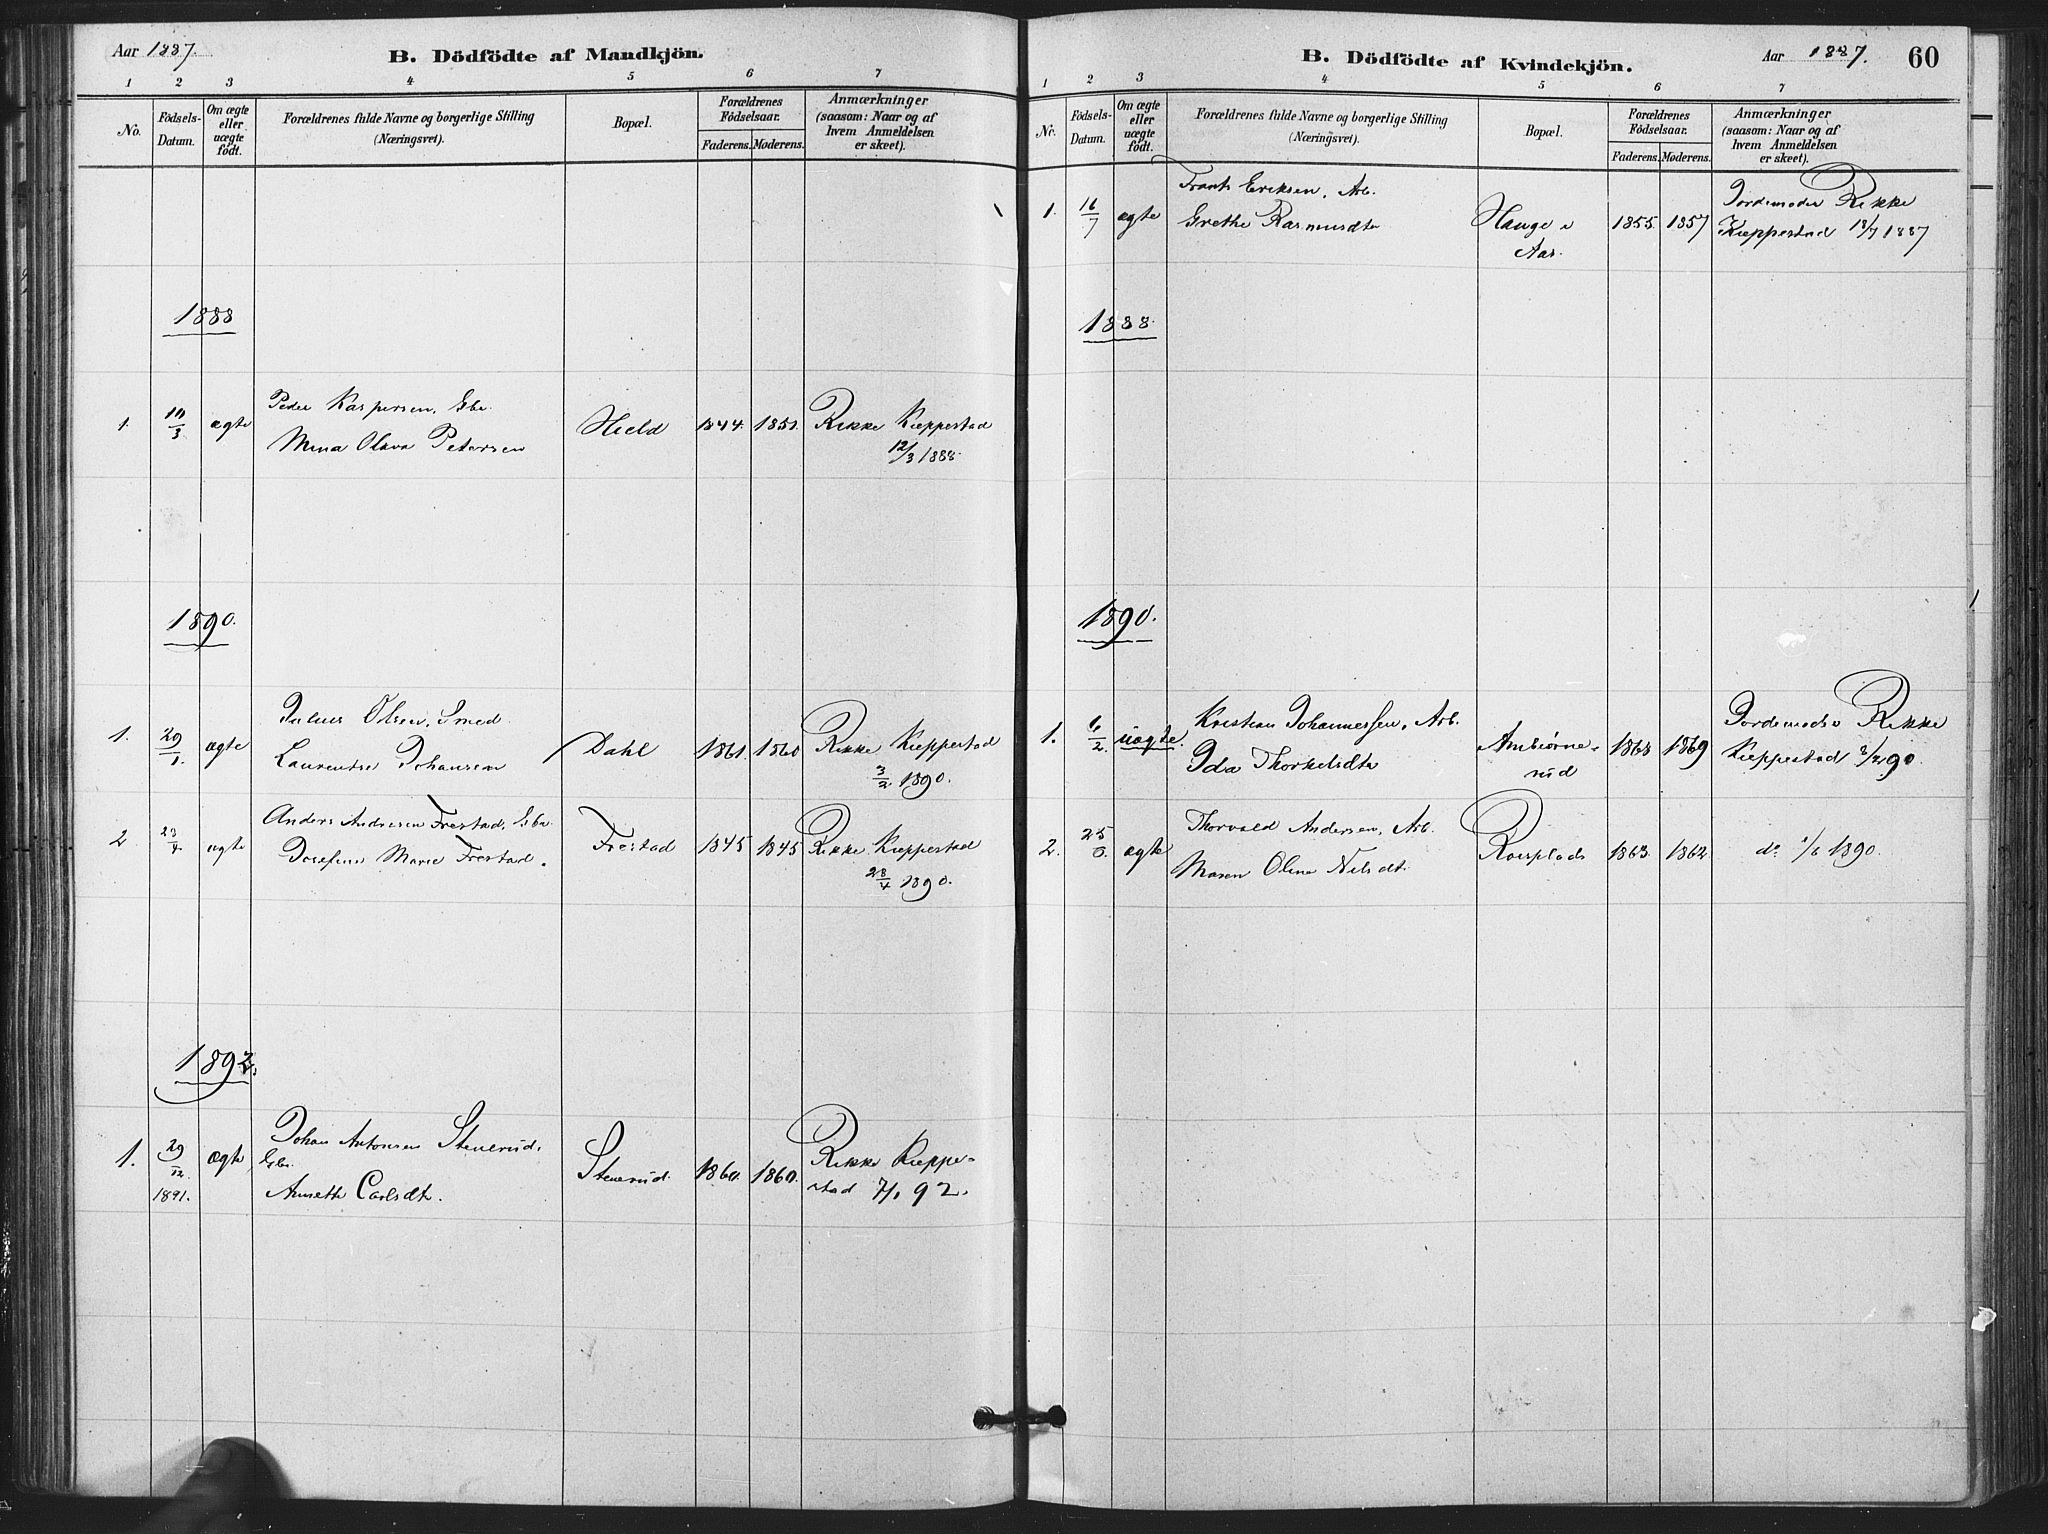 Aar 1887.
B. Dödfödte af Mandkjön.
1 2 3 4 5 6 7
No.
Födsels-
Datum.
Om ægte
eller
uægte
födt.
Forældrenes fulde Navne og borgerlige Stilling
(Næringsvei).
Bopæl.
Forældrenes
Födselsaar.
Faderens. Moderens.
Anmærkninger
(saasom: Naar og af
hvem Anmeldelsen
er skeet).
1888
1. 10/3 ægte
Peder Kaspersen, Gbr.
Mina Olava Petersen
Hield 1844. 1851.
Rikke Kieppestad
12/3 1888.
1890.
1. 29/1 ægte
Julius Olsen, Smed.
Laurentse Johansen
Dahl 1861. 1860
Rikke Kieppestad
3/2 1890.
2 23/4 ægte
Anders Andresen Frestad, Gbr.
Josefine Marie Frestad.
Frestad 1845 1845
Rikke Kieppestad
28/4 1890.
1892.
1. 29/12 1891. ægte
Johan Antonsen Stenerud,
Gbr.
Annette Carlsdtr.
Stenerud. 1860. 1860.
Rikke Kieppe-
stad 7/1 92.
B. Dödfödte af Kvindekjön.
Aar 1887.
60
1 2 3 4 5 6 7
Nr.
Födsels-
Datum.
Om ægte
eller
uægte
födt.
Forældrenes fulde Navne og borgerlige Stilling
(Næringsvei).
Bopæl.
Forældrenes
Födselsaar.
Faderens. Moderens.
Anmærkninger
(saasom: Naar og af
hvem Anmeldelsen
er skeet).
1. 16/7 ægte
Frants Eriksen, Arb.
Grethe Rasmusdtr
Hauge i
Aas.
1855. 1857
Jordemoder Rikke
Kieppestad 18/7 1887
1888.
1890.
1. 6/2 uægte.
Kristian Johannessen, Arb.
Ida Thorkelsdtr
Ambiørns-
rud
1868 1869
Jordemoder Rikke
Kieppestad 8/2 90.
2. ægte
Thorvald Andersen, Arb.
Maren Oline Nilsdtr.
1863. 1862.
do 1/6 1890.